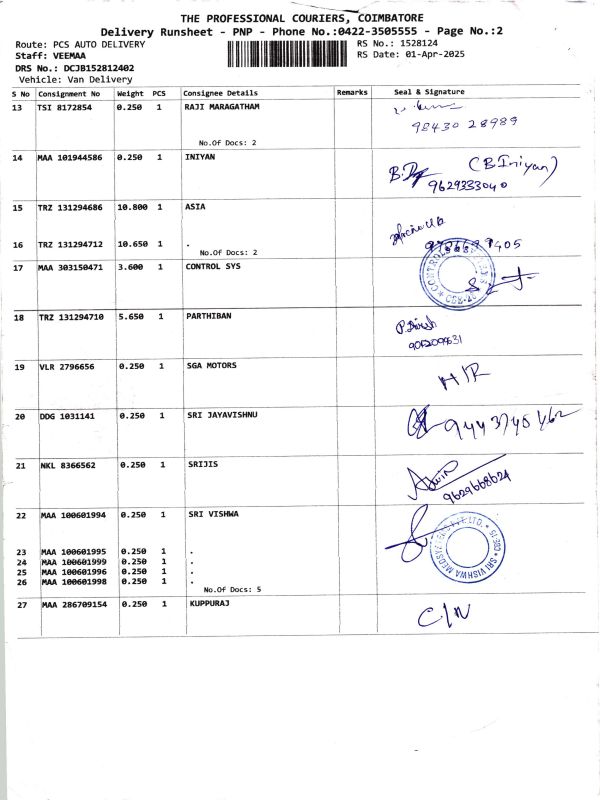 THE PROFESSIONAL COURIERS, COIMBATORE
Delivery Runsheet - PNP - Phone No.:0422-3505555 - Page No.:2
Route: PCS AUTO DELIVERY RS No.: 1528124
Staff: VEEMAA RS Date: 01-Apr-2025
DRS No.: DCJB152812402
Vehicle: Van Delivery
S No Consignment No Weight PCS Consignee Details Remarks Seal & Signature
13 TSI 8172854 0.250 1 RAJI MARAGATHAM
98430 28989
No.Of Docs: 2
14 MAA 101944586 0.250 1 INIYAN
(B.Iniyan)
9629333040
15 TRZ 131294686 10.800 1 ASIA
16 TRZ 131294712 10.650 1 .
No.Of Docs: 2
17 MAA 303150471 3.600 1 CONTROL SYS
18 TRZ 131294710 5.650 1 PARTHIBAN
19 VLR 2796656 0.250 1 SGA MOTORS
H/R
20 DDG 1031141 0.250 1 SRI JAYAVISHNU
9443745462
21 NKL 8366562 0.250 1 SRIJIS
9629668624
22 MAA 100601994 0.250 1 SRI VISHWA
SRI VISHWA MEDSYSTEMS PVT.LTD. CBE-15
23 MAA 100601995 0.250 1 .
24 MAA 100601999 0.250 1 .
25 MAA 100601996 0.250 1 .
26 MAA 100601998 0.250 1 .
No.Of Docs: 5
27 MAA 286709154 0.250 1 KUPPURAJ
C/N